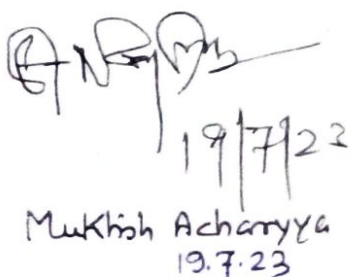 19/7/23
Mukhish Acharyya
19.7.23